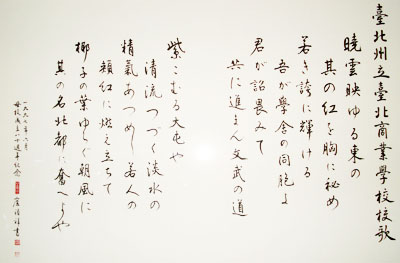 臺北州立臺北商業學校校歌
曉雲映ゆる東の
其の紅を胸に秘め
若き誇に輝ける
吾が學舎の同胞よ
君が詔畏みて
共に進まん文武の道
紫こむる大屯や
清流つづく淡水の
精氣あつめし若人の
頬紅に燃え立ちて
椰子の葉ゆらぐ朝風に
其の名北都に奮へよや
母校成立八十週年紀念